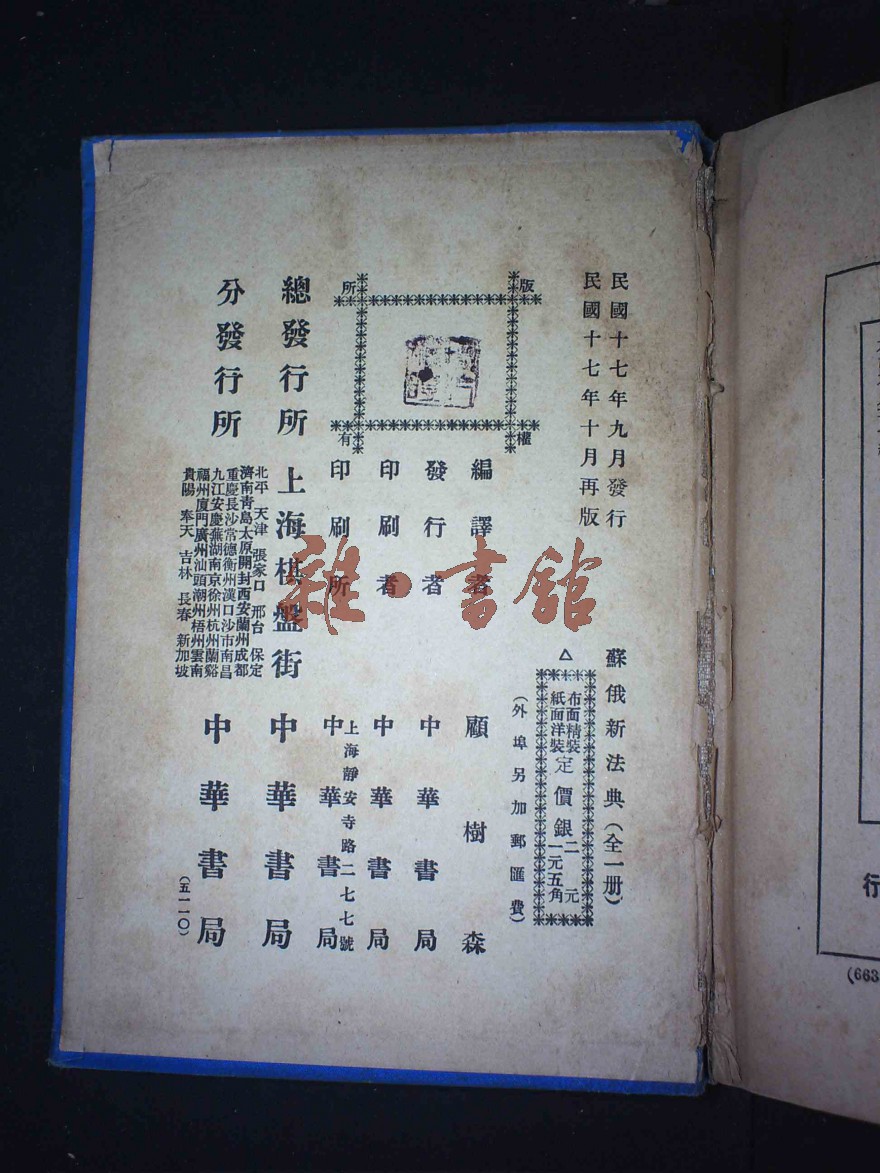 民國十七年九月發行
民國十七年十月再版
蘇俄新法典（全一册）
△
布面精裝 定價銀二元
紙面洋裝 定價銀一元五角
（外埠另加郵匯費）
版權所有
編譯者 顧樹森
發行者 中華書局
印刷者 中華書局
上海靜安寺路二七七號
印刷所 中華書局
總發行所 上海棋盤街 中華書局
分發行所
北平 天津 張家口 邢台 保定
濟南青島太原開封西安蘭州成都
重慶長沙常德衡州漢口沙市南昌
九江安慶蕪湖南京徐州杭州蘭谿
福州廈門廣州汕頭潮州梧州雲南
貴陽 奉天 吉林 長春 新加坡
中華書局
（五一一〇）
雜·書館
行
(663